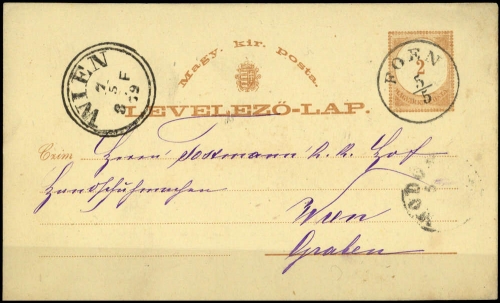 Magy. kir. Posta.
LEVELEZŐ-LAP.
WIEN
7
5 F
8 79
2
5/5
Czim Herrn k. k. Hof
Handschuhmacher
Wien
Graben